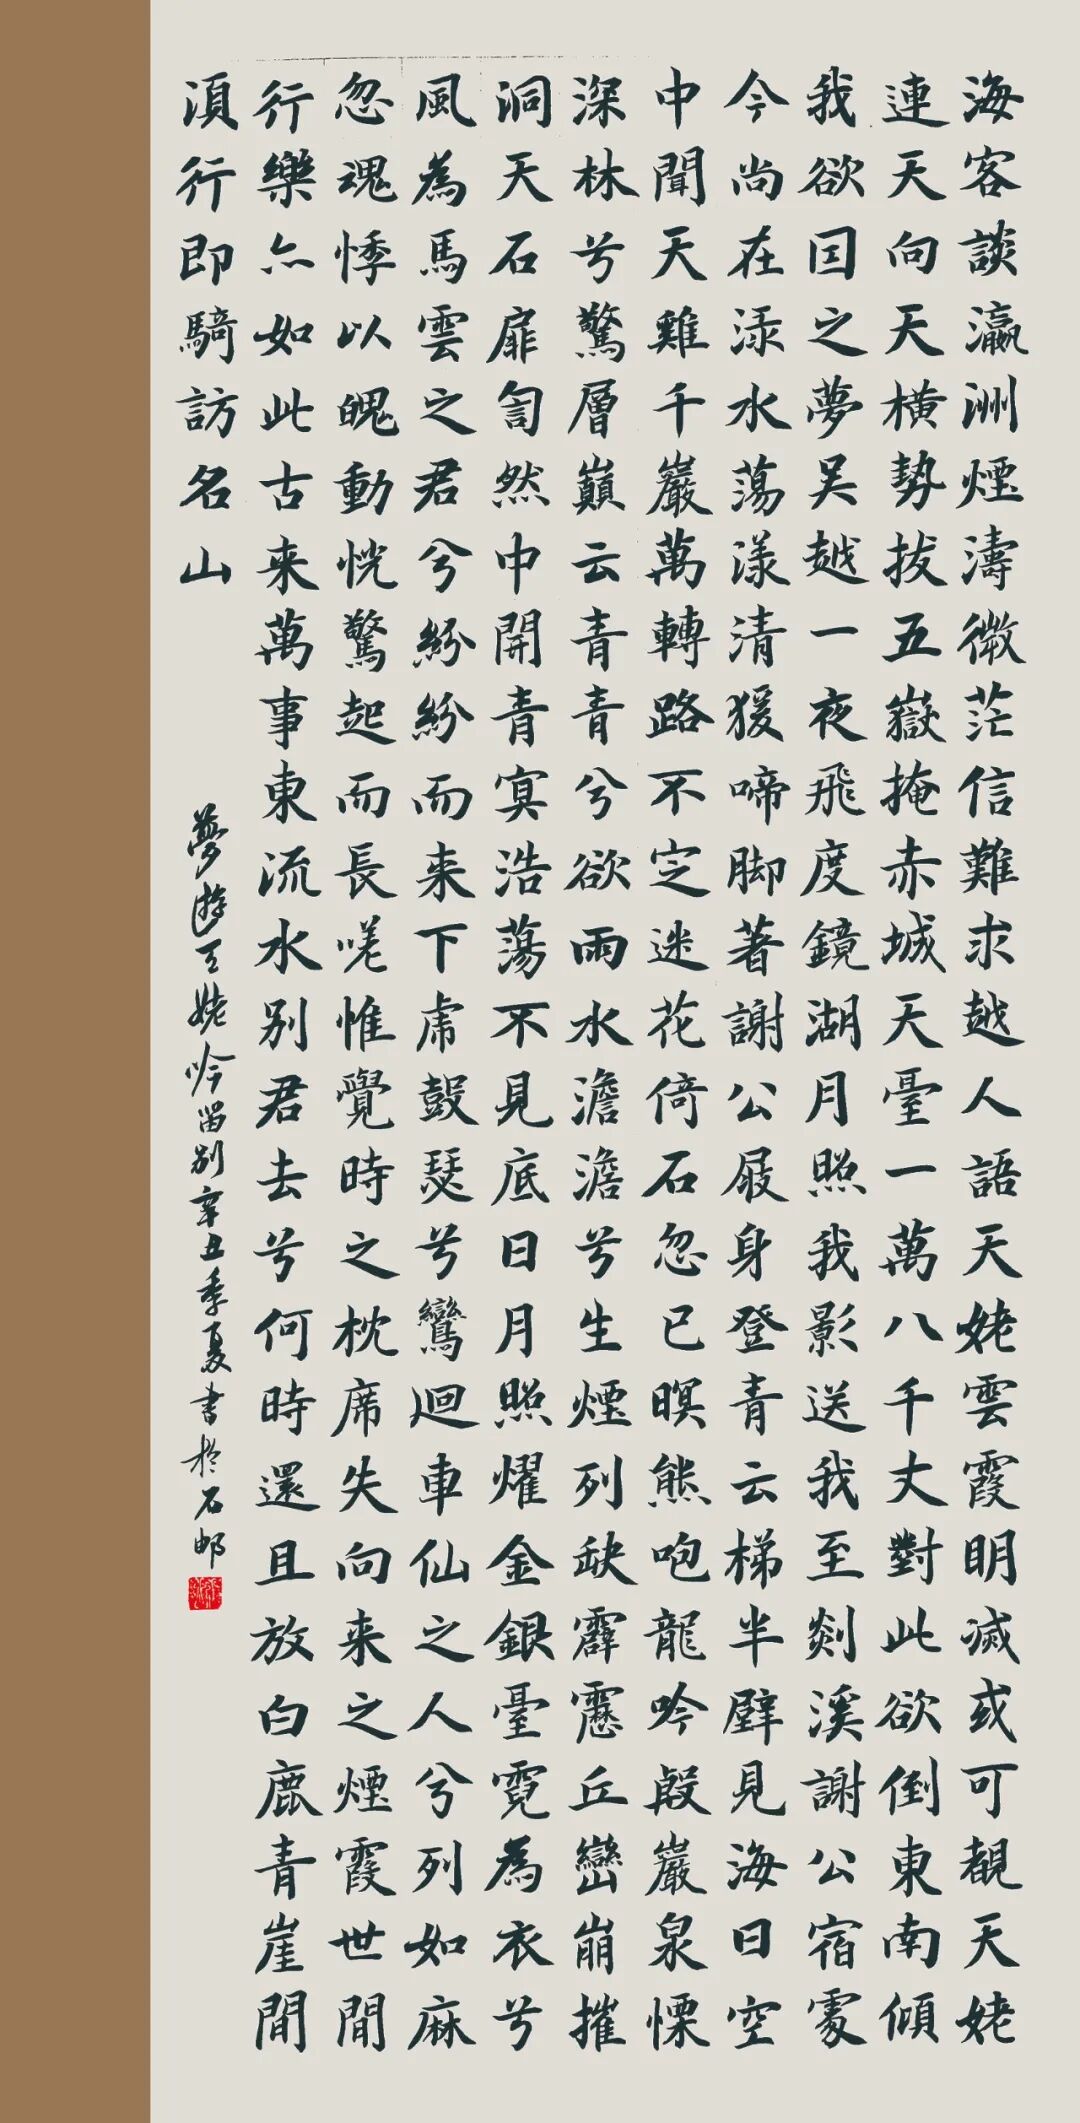 海客談瀛洲煙濤微茫信難求越人語天姥雲霞明滅或可覩天姥
連天向天橫勢拔五嶽掩赤城天臺一萬八千丈對此欲倒東南傾
我欲因之夢吴越一夜飛度鏡湖月月照我影送我至剡溪謝公宿處
今尚在渌水蕩漾清猨啼脚著謝公屐身登青云梯半壁見海日空
中聞天雞千巖萬轉路不定迷花倚石忽已暝熊咆龍吟殷巖泉慄
深林兮驚層巔云青青兮欲雨水澹澹兮生煙列缺霹靂丘巒崩摧
洞天石扉訇然中開青冥浩蕩不見底日月照燿金銀臺霓為衣兮
風為馬雲之君兮紛紛而来下虎鼓瑟兮鸞迴車仙之人兮列如麻
忽魂悸以魄動恍驚起而長嗟惟覺時之枕席失向来之煙霞世間
行樂亦如此古来萬事東流水别君去兮何時還且放白鹿青崖間
須行即騎訪名山
夢遊天姥吟留别辛丑季夏書於石邮